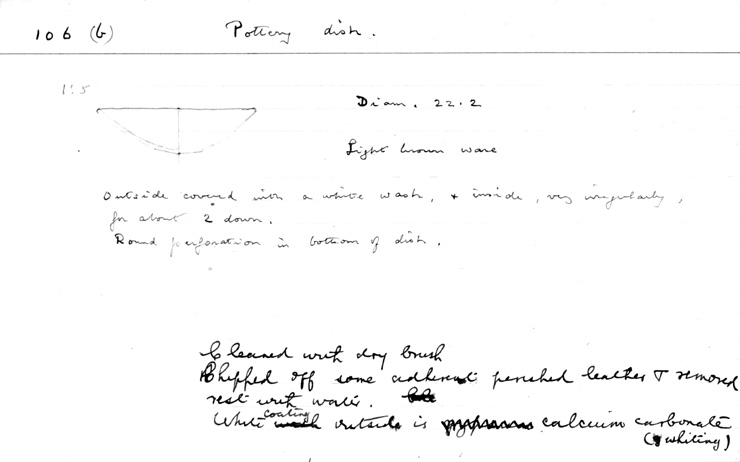 106 (b) Pottery dish.
1:5
Diam. 22.2
Light brown ware
Outside covered with a white wash, & inside, very irregularly,
for about 2 down.
Round perforation in bottom of dish.
Cleaned with dry brush
Chipped off some adherent perished leather & removed
rest with water.
White coating outside is calcium carbonate
(whiting)